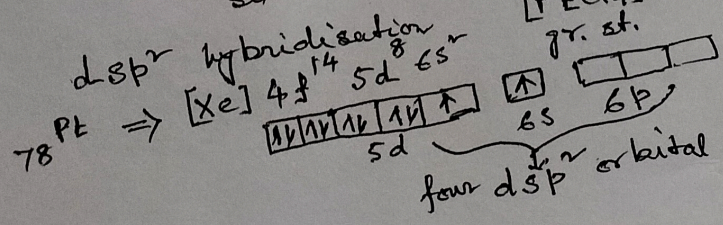 dsp² hybridisation
gr. st.
₇₈Pt ⇒ [Xe] 4f¹⁴ 5d⁸ 6s²
↑↓ ↑↓ ↑↓ ↑↓ ↑ ↑
5d 6s 6p
four dsp² orbital